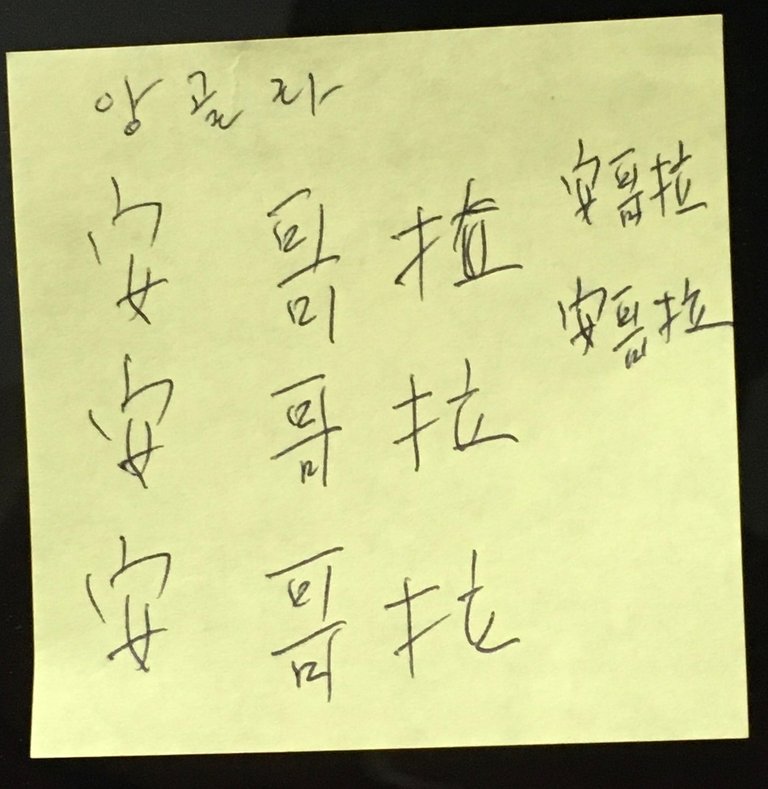 앙골라
安哥拉
安哥拉
安哥拉
安哥拉
安哥拉